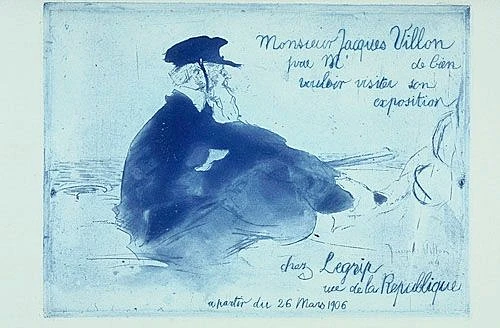 Monsieur Jacques Villon
prie M^r de bien
vouloir visiter son
exposition
Jacques Villon
chez Legrip
rue de la République
a partir du 26 Mars 1906